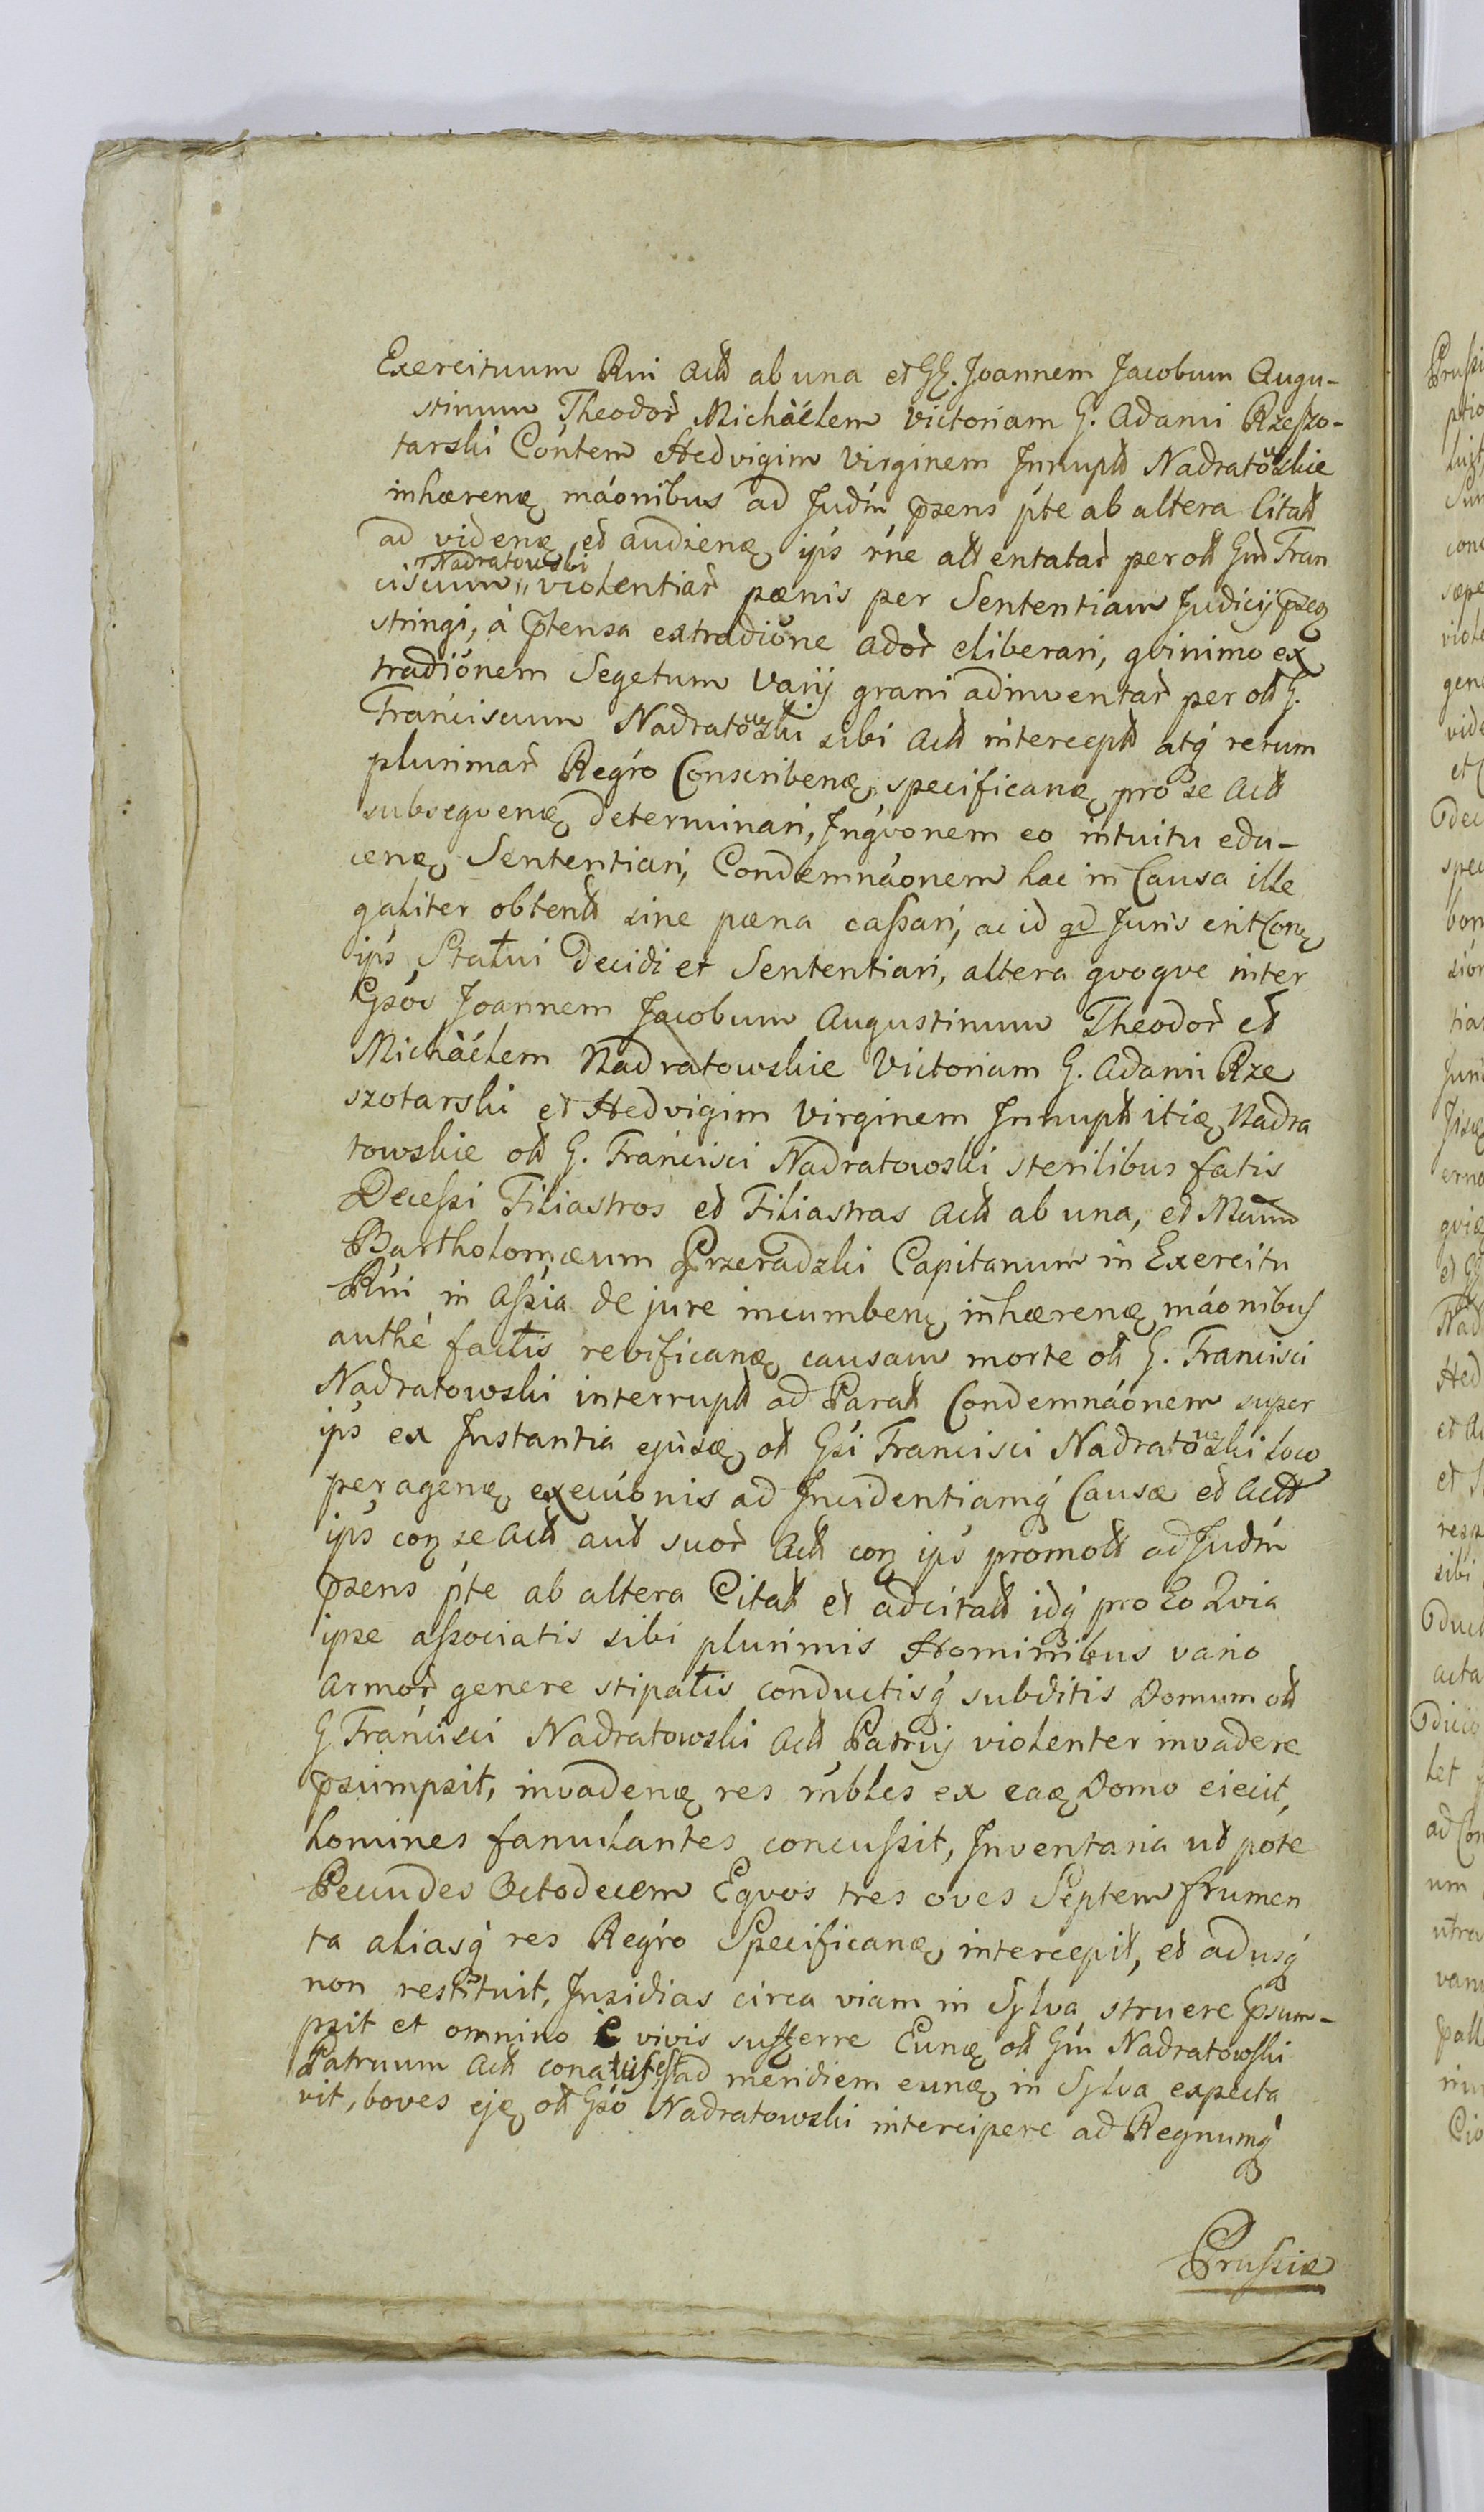 Exercituum Rni Actt ab una et GG. Joannem Jacobum Augu-
stinum Theodor Michäelem Victoriam G. Adami Rzeszo-
tarski Contem Hedvigim Virginem Innupt Nadratowskie
inhæren máonibus ad Judm psens pte ab altera Citatt
ad viden et audien ips rne attentatar per ott Gm Fran
Nadratowski
ciscum violentiar pænis per Sententiam Judicij pser
stringi, á ptensa extradióne Ador eliberari, qvinimo ex
tradiónem Segetum Varij grani adinventar per ott G.
Franciscum Nadratowski sibi Actt intercept atq rerum
plurimar Regro Conscriben, specifican pro se Actt
subseqven determinari, Inqvonem eo intuitu edu-
cen Sententiari, Condemnáonem hac in Causa ille
galiter obtent sine pæna cassari, ac id qd Juris erit Con
ips Statui Decidi et Sententiari, altera qvoqve inter
Gsos Joannem Jacobum Augustinum Theodor et
Michäelem Nadratowskie Victoriam G. Adami Rze
szotarski et Hedvigim Virginem Innupt itid Nadra
towskie ott G. Francisci Nadratowski sterilibus fatis
Decessi Filiastros et Filiastras Actt ab una, et Mcum
Bartholomæum Przeradzki Capitanum in Exercitu
Rni in Assia de jure incumben inhæren máonibus
authe factis revifican causam morte ott G. Francisci
Nadratowski interrupt ad Parat Condemnáonem super
ips ex Instantia ejusd ott Gsi Francisci Nadratowski loco
peragen execuonis ad Incidentiamq Causæ et Actt
ips con se Actt aut suor Actt con ips promott ad Judm
psens pte ab altera Citat et adcitatt idq pro Eo Qvia
ipse associatis sibi plurimis Hominibus vario
Armor genere stipatis conductisq subditis Domum ott
G Francisci Nadratowski Actt Patruj violenter invadere
psumpsit, invaden res mbles ex ead Domo eiecit,
homines famulantes concussit, Inventaria ut pote
Pecudes Octodecem Eqvos tres oves Septem frumen
ta aliasq res Regro Specifican intercepit, et adusq
non restituit, Insidias circa viam in Sylva struere psum-
psit et omnino e vivis sufferre Eun ott Gm Nadratowski
Patruum Actt conatus est ad meridiem eun in Sylva expecta
vit, boves ej ott Gso Nadratowski intercipere ad Regnumq
Prussiæ